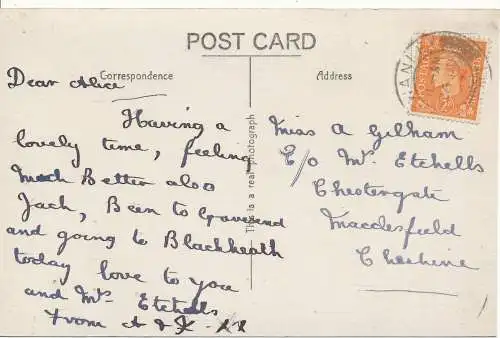 POST CARD
Correspondence
Address
Dear Alice
Having a
lovely time, feeling
much Better also
Jack, Been to Gravesend
and going to Blackheath
today love to you
and Mrs Etchells
From A & J. XX
This is a real photograph
Miss A Gilham
C/o Mrs Etchells
Chestergate
Macclesfield
Cheshire
POSTAGE